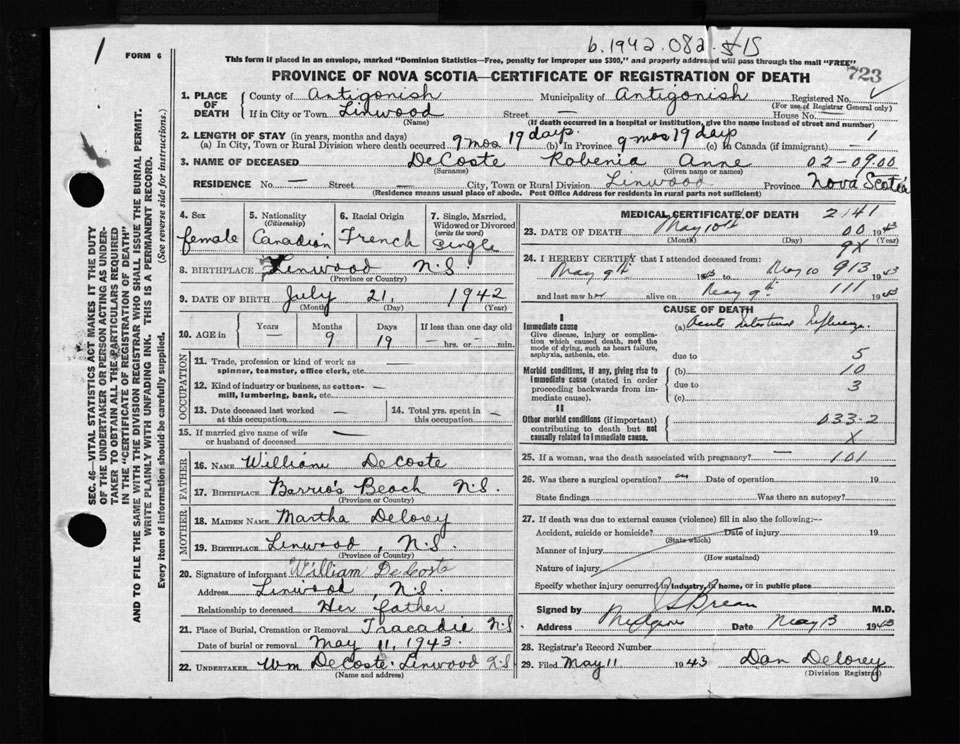 1
b.1942.082.815
FORM 6
This form if placed in an envelope, marked "Dominion Statistics—Free, penalty for improper use $300," and properly addressed will pass through the mail "FREE"
PROVINCE OF NOVA SCOTIA—CERTIFICATE OF REGISTRATION OF DEATH
723
1. PLACE OF DEATH
County of Antigonish Municipality of Antigonish Registered No.
(For use of Registrar General only)
If in City or Town Linwood Street House No.
(Name) (If death occurred in a hospital or institution, give the name instead of street and number)
2. LENGTH OF STAY (in years, months and days)
(a) In City, Town or Rural Division where death occurred 9 mos 19 days. (b) In Province 9 mos 19 days (c) In Canada (if immigrant) — 1
3. NAME OF DECEASED DeCoste Robenia Anne 02-0900
(Surname) (Given name or names)
RESIDENCE No. — Street — City, Town or Rural Division Linwood Province Nova Scotia
(Residence means usual place of abode. Post Office Address for residents in rural parts not sufficient)
4. Sex female
5. Nationality (Citizenship) Canadian
6. Racial Origin French
7. Single, Married, Widowed or Divorced (write the word) Single
8. BIRTHPLACE Linwood N.S.
(Province or Country)
9. DATE OF BIRTH July 21, 1942
(Month) (Day) (Year)
10. AGE in Years — Months 9 Days 19 If less than one day old — hrs. or — min.
OCCUPATION
11. Trade, profession or kind of work as spinner, teamster, office clerk, etc. —
12. Kind of industry or business, as cotton-mill, lumbering, bank, etc. —
13. Date deceased last worked at this occupation —
14. Total yrs. spent in this occupation —
15. If married give name of wife or husband of deceased —
FATHER
16. NAME William DeCoste
17. BIRTHPLACE Barrio's Beach N.S.
(Province or Country)
MOTHER
18. MAIDEN NAME Martha Delorey
19. BIRTHPLACE Linwood, N.S.
(Province or Country)
20. Signature of informant William DeCoste
Address Linwood, N.S.
Relationship to deceased Her father
21. Place of Burial, Cremation or Removal Tracadie N.S
Date of burial or removal May 11, 1943.
22. UNDERTAKER Wm DeCoste Linwood N.S
(Name and address)
MEDICAL CERTIFICATE OF DEATH 2141
23. DATE OF DEATH May 10th 00 1943
(Month) (Day) (Year)
9x
24. I HEREBY CERTIFY that I attended deceased from:
May 9th 1943 to May 10 913 1943
and last saw her alive on May 9th 111 1943
CAUSE OF DEATH
I
Immediate cause
Give disease, injury or complication which caused death, not the mode of dying, such as heart failure, asphyxia, asthenia, etc.
(a) Acute Intestinal Influenza.
due to 5
Morbid conditions, if any, giving rise to immediate cause (stated in order proceeding backwards from immediate cause).
(b) 10
due to 3
(c)
II
Other morbid conditions (if important) contributing to death but not causally related to immediate cause.
033-2
X
25. If a woman, was the death associated with pregnancy? — 101
26. Was there a surgical operation? no Date of operation 19
State findings Was there an autopsy?
27. If death was due to external causes (violence) fill in also the following:—
Accident, suicide or homicide? Date of injury 19
(State which)
Manner of injury
(How sustained)
Nature of injury
Specify whether injury occurred in industry, in home, or in public place
Signed by M.D.
Address Mulgrave Date May 13 1943
28. Registrar's Record Number
29. Filed May 11 1943 Dan Delorey
(Division Registrar)
SEC. 46—VITAL STATISTICS ACT MAKES IT THE DUTY OF THE UNDERTAKER OR PERSON ACTING AS UNDERTAKER TO OBTAIN ALL THE PARTICULARS REQUIRED IN THE "CERTIFICATE OF REGISTRATION OF DEATH" AND TO FILE THE SAME WITH THE DIVISION REGISTRAR WHO SHALL ISSUE THE BURIAL PERMIT.
WRITE PLAINLY WITH UNFADING INK. THIS IS A PERMANENT RECORD.
Every item of information should be carefully supplied. (See reverse side for instructions.)